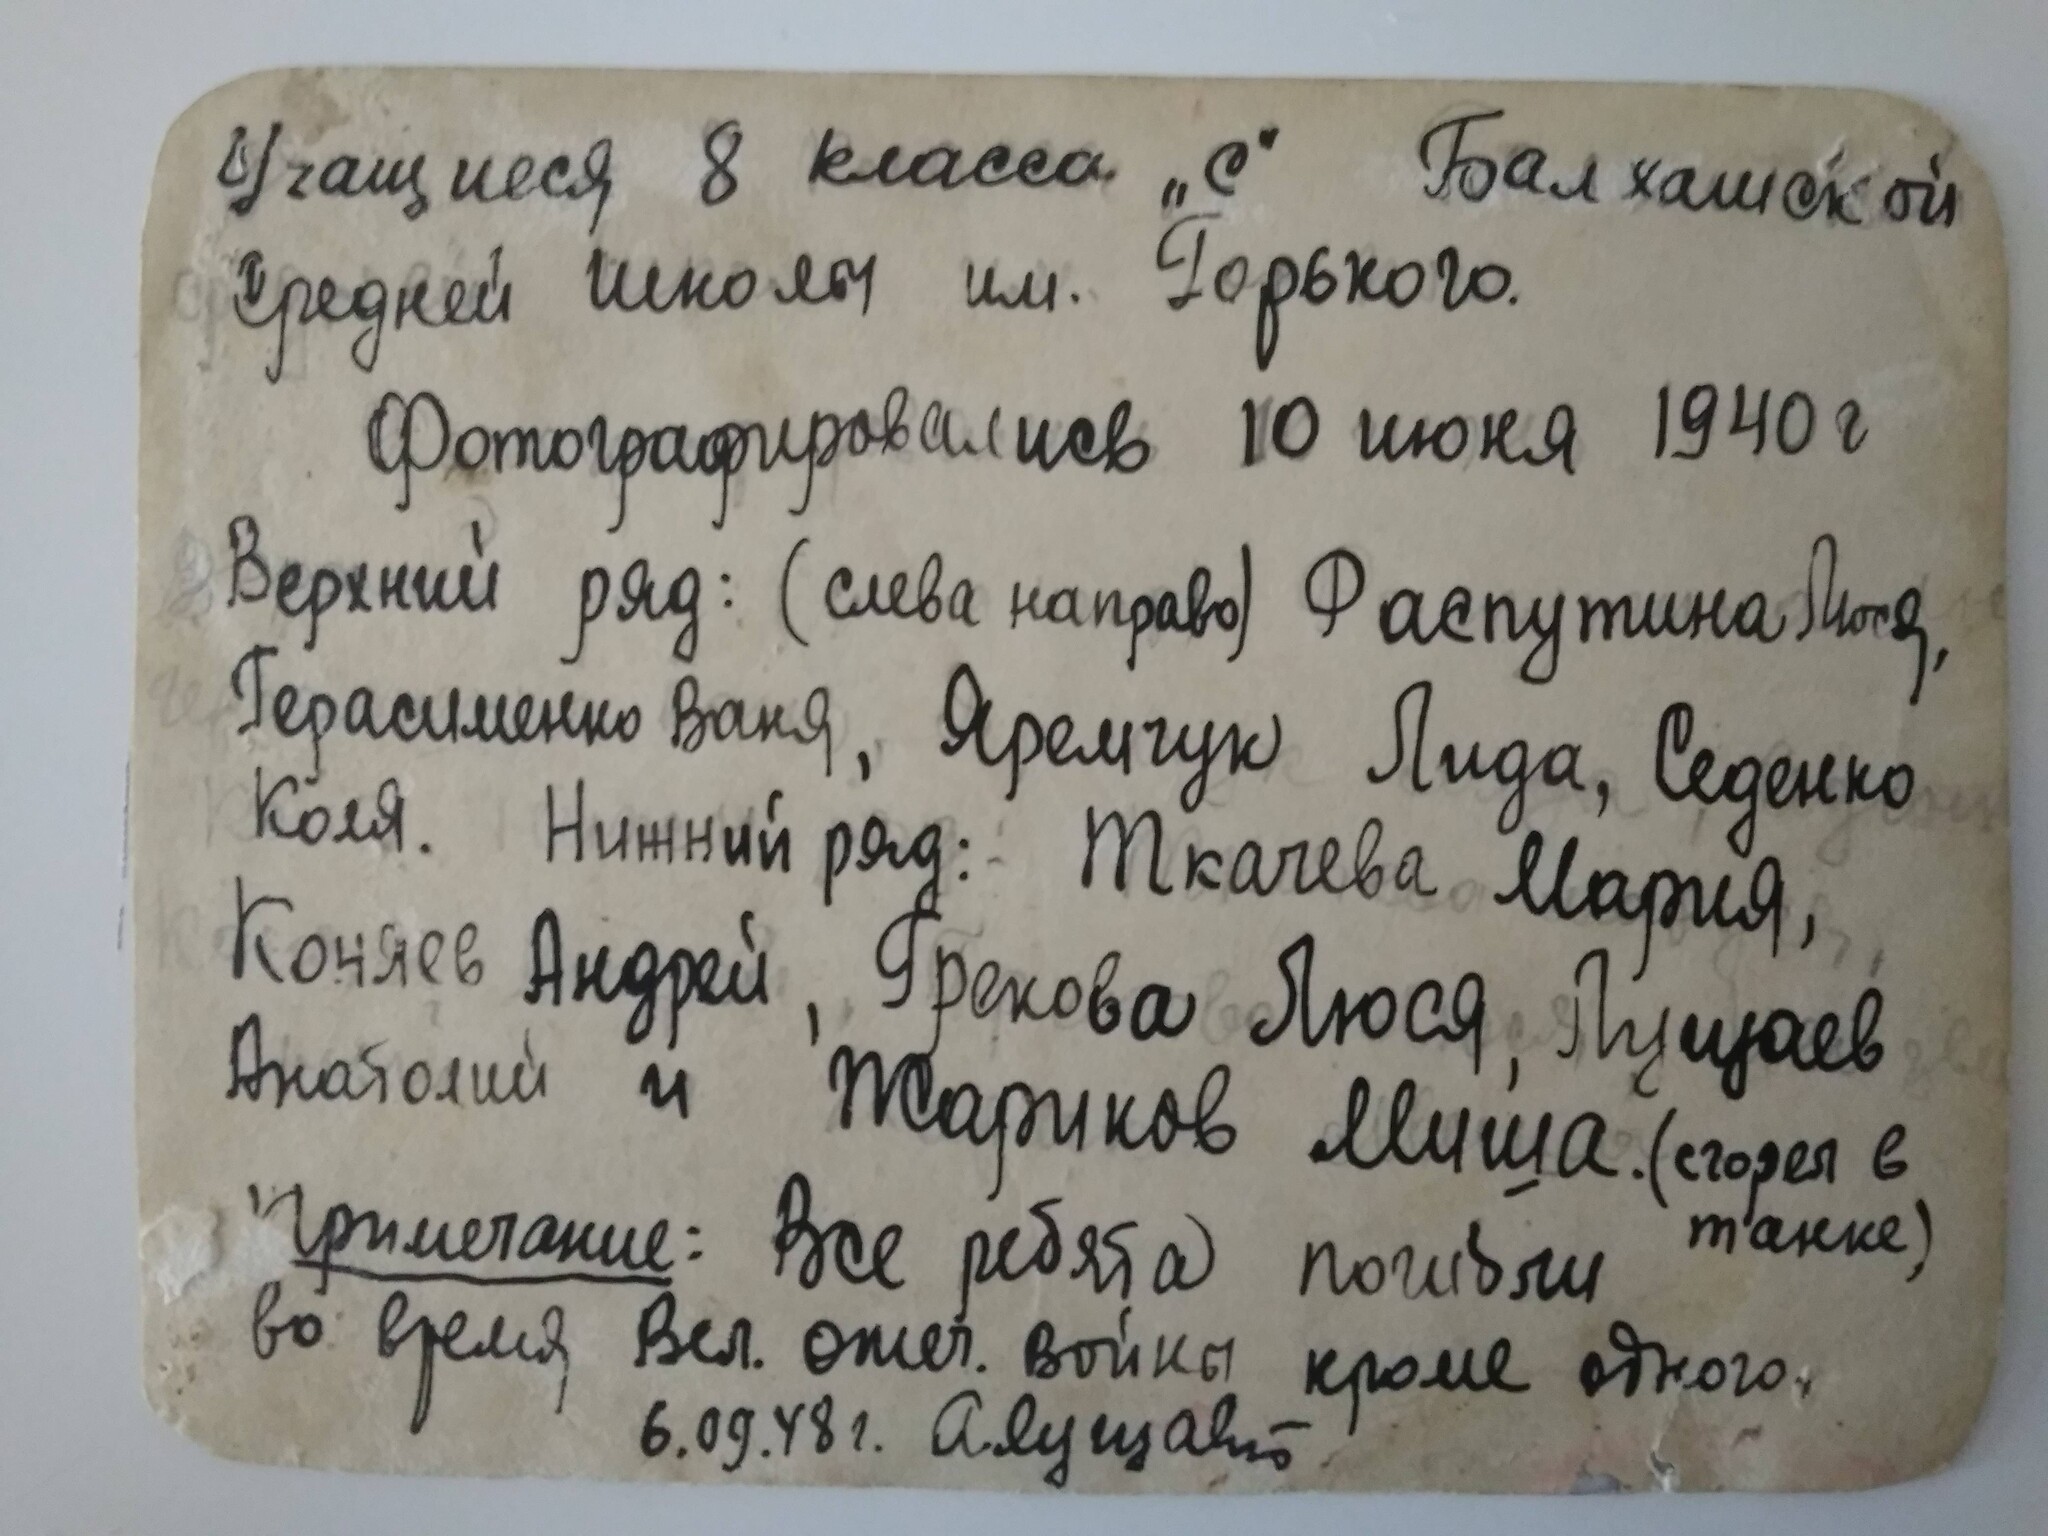 Учащиеся 8 класса „С" Балхашской
средней школы им. Горького.
Фотографировались 10 июня 1940 г
Верхний ряд: (слева направо) Распутина Люся,
Герасименко Ваня, Яремчук Лида, Седенко
Коля. Нижний ряд: Ткачева Мария,
Коняев Андрей, Грекова Люся, Лущаев
Анатолий и Жариков Миша. (сгорел в
танке)
Примечание: Все ребята погибли
во время Вел. отеч. войны кроме одного.
6.09.48 г.